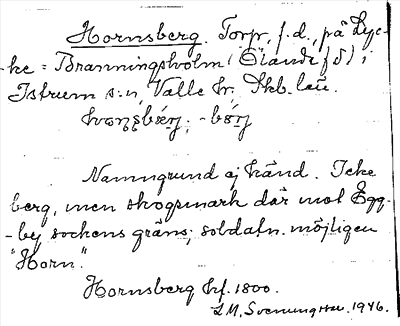 Hornsberg. Torp, f.d., på Lyc-
-ke = Branningsholm (Ölandi f d) i
Istrum s:n, Valle hr. Skb. län.
Namngrund ej känd. Icke
berg, men skogsmark där mot Egg-
-by sockens gräns; soldatn. möjligen
"Horn".
Hornsberg hf. 1800.
L M, Svenungsson. 1946.